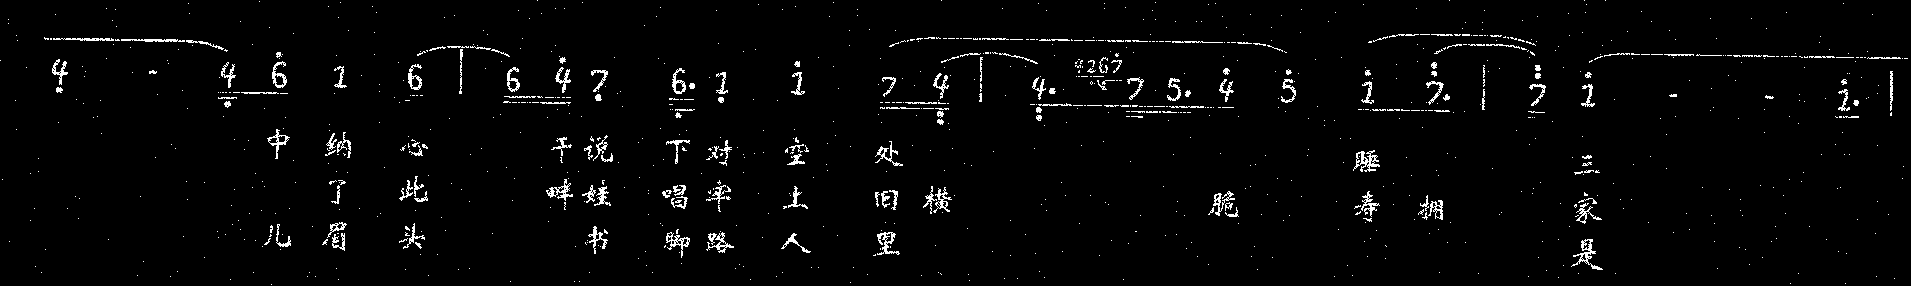 4 - 4 6 1 6 | 6 4 7 6. 1 1 7 4 | 4. 4267 7 5. 4 5 1 7. | 7 1 - - 1. |
中 纳 心 干 说 下 对 空 处 睡 三
了 此 畔 娃 唱 牢 土 旧 横 脆 寿 拥 家
儿 眉 头 书 脚 路 人 里 是